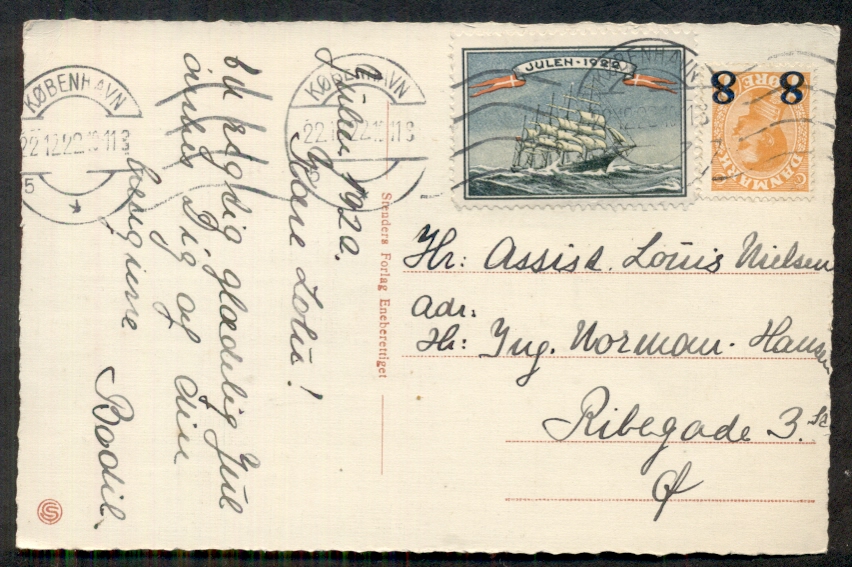 KØBENHAVN
22.12.22.10-11 F
KØBENHAVN
22.12.22.10-11 F
JULEN · 1922
KØBENHAVN
8 8
DANMARK
ØRE
Julen 1922.
Kære Louis!
En rigtig glædelig Jul
ønskes Dig af din
hengivne
Bodil.
Stenders Forlag Eneberettiget
Hr: Assist. Louis Nielsen
Adr:
Hr: Ing. Norman-Hansen
Ribegade 3.
Ø